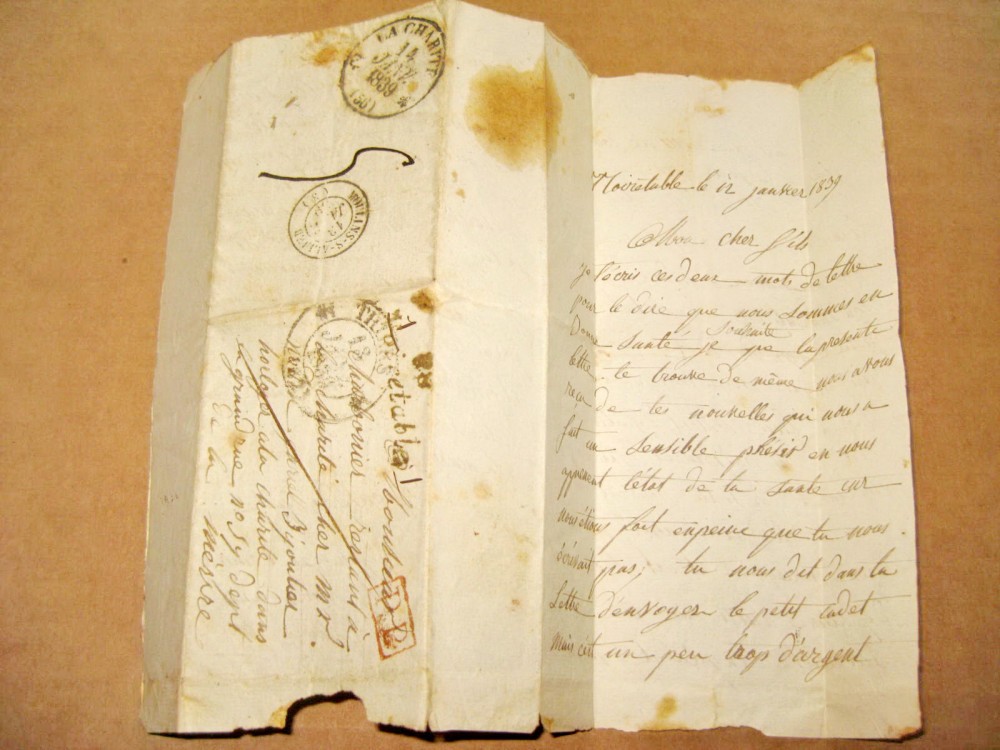 LA CHARITÉ
14
JANV.
1839
(56)
MOULINS-S-ALLIER
Noirétable
Monsieur
Charbonier rentant à
la charité cher mr.
Bijoutier
horloger a la charité dans
la grand rue no 59 depot
De la Mèsre
Noirétable le 12 janvier 1839
Mon cher fils
je t'écris ces deux mots de lettre
pour te dire que nous sommes en
bonne santé je souhaite que la presente
lettre te trouve de même nous avons
reçu de tes nouvelles qui nous a
fait un sensible plésir en nous
apprenent l'état de ta santé car
nous étions fort enpeine que tu nous
écrivait pas; tu nous dit dans ta
Lettre d'envoyer le petit cadet
mais c'ét un peu trop d'argent